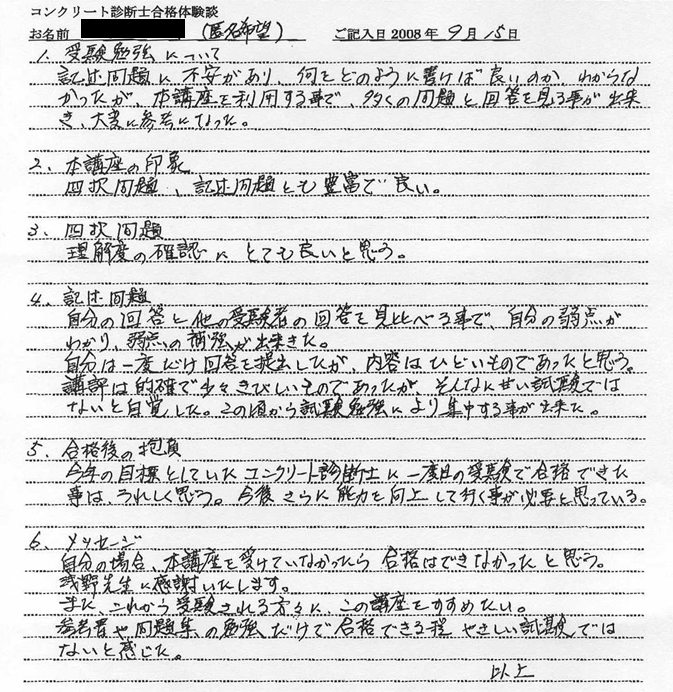 コンクリート診断士合格体験談
お名前 (匿名希望) ご記入日 2008 年 9 月 15 日
1. 受験勉強について
記述問題に不安があり、何をどのように書けば良いのか、わからな
かったが、本講座を利用する事で、多くの問題と回答を見る事が出来
き、大変に参考になった。
2. 本講座の印象
四択問題、記述問題とも豊富で良い。
3. 四択問題
理解度の確認にとても良いと思う。
4. 記述問題
自分の回答と他の受験者の回答を見比べる事で、自分の弱点が
わかり、弱点の補強が出来きた。
自分は一度だけ回答を提出したが、内容はひどいものであったと思う。
講評は的確で少々きびしいものであったが、そんなに甘い試験では
ないと自覚した。この頃から試験勉強により集中する事が出来た。
5. 合格後の抱負
今年の目標としていたコンクリート診断士に一度目の受験で合格できた
事は、うれしく思う。今後さらに能力を向上して行く事が必要と思っている。
6. メッセージ
自分の場合、本講座を受けていなかったら合格はできなかったと思う。
浅野先生に感謝いたします。
また、これから受験される方々に、この講座をすすめたい。
参考書や問題集の勉強だけで合格できる程やさしい試験では
ないと感じた。
以上